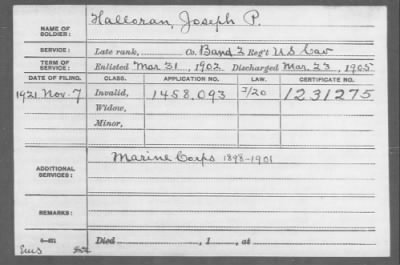 NAME OF SOLDIER: Halloran, Joseph P.
SERVICE: Late rank, Co. Band 2 Reg't U S Cav
TERM OF SERVICE: Enlisted Mar 31, 1902 Discharged Mar. 23, 1905
DATE OF FILING. CLASS. APPLICATION NO. LAW. CERTIFICATE NO.
1921 Nov. 7 Invalid, 1458,093 1231275
Widow,
Minor,
ADDITIONAL SERVICES: Marine Corps 1898-1901
REMARKS:
Died , 1 , at